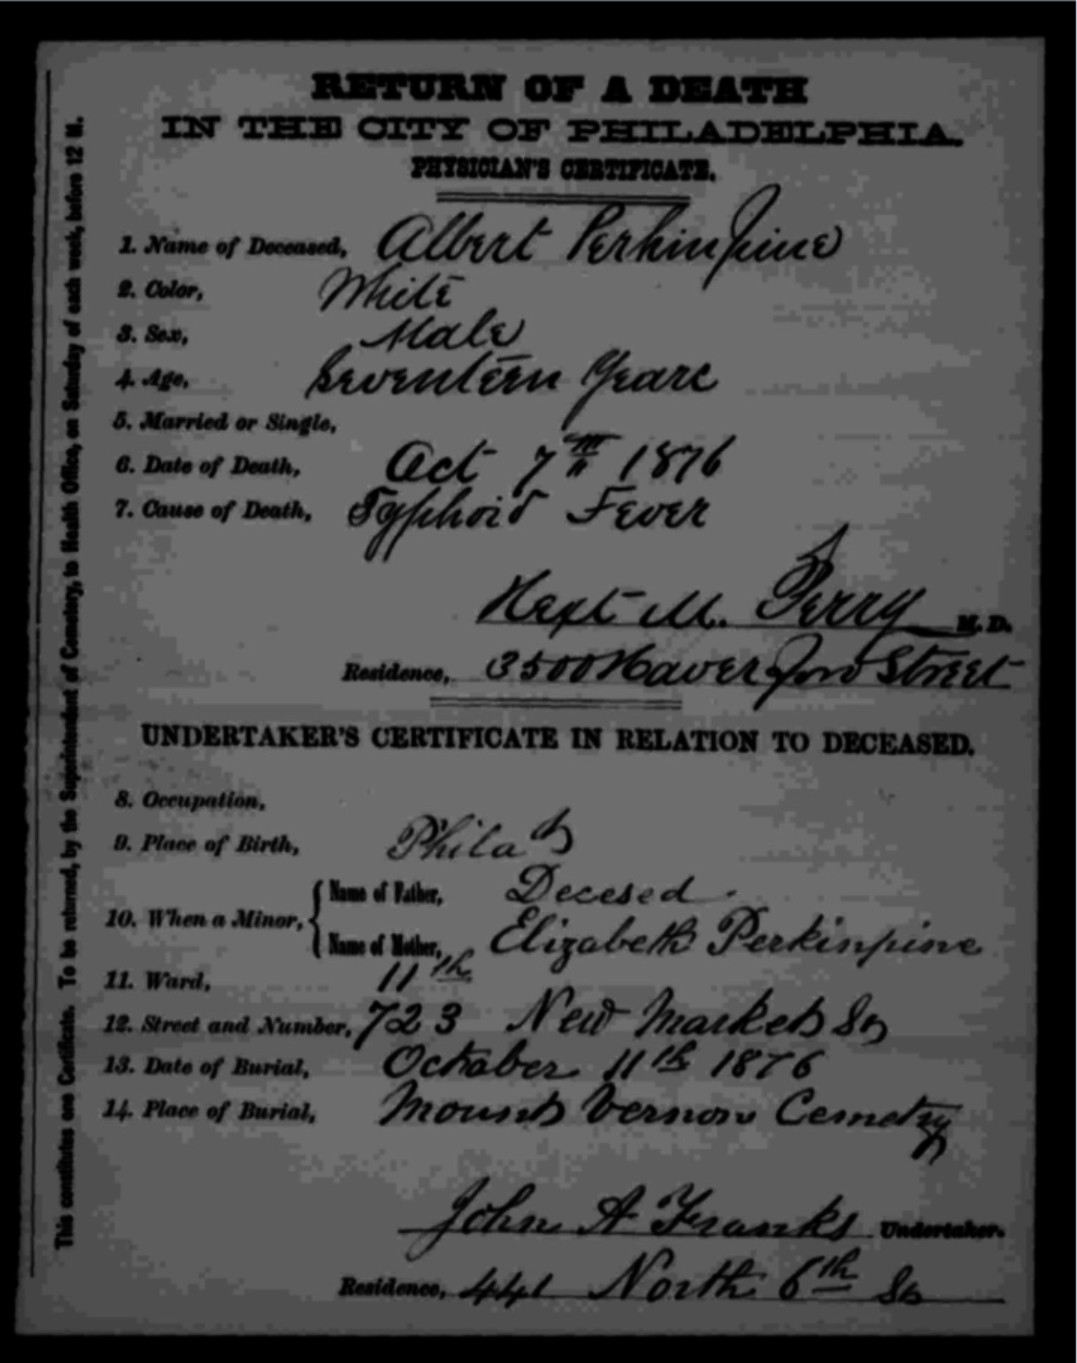 RETURN OF A DEATH
IN THE CITY OF PHILADELPHIA.
PHYSICIAN'S CERTIFICATE.
1. Name of Deceased, Albert Perkinpine
2. Color, White
3. Sex, Male
4. Age, Seventeen Years
5. Married or Single,
6. Date of Death, Oct 7th 1876
7. Cause of Death, Typhoid Fever
Hext M. Perry M. D.
Residence, 3500 Haverford Street
UNDERTAKER'S CERTIFICATE IN RELATION TO DECEASED.
8. Occupation,
9. Place of Birth, Philaᵃ
10. When a Minor, { Name of Father, Decesed
Name of Mother, Elizabeth Perkinpine
11. Ward, 11th
12. Street and Number, 723 New Market St
13. Date of Burial, October 11th 1876
14. Place of Burial, Mount Vernon Cemetry
John A Franks Undertaker.
Residence, 441 North 6th St
This constitutes one Certificate. To be returned, by the Superintendent of Cemetery, to Health Office, on Saturday of each week, before 12 M.